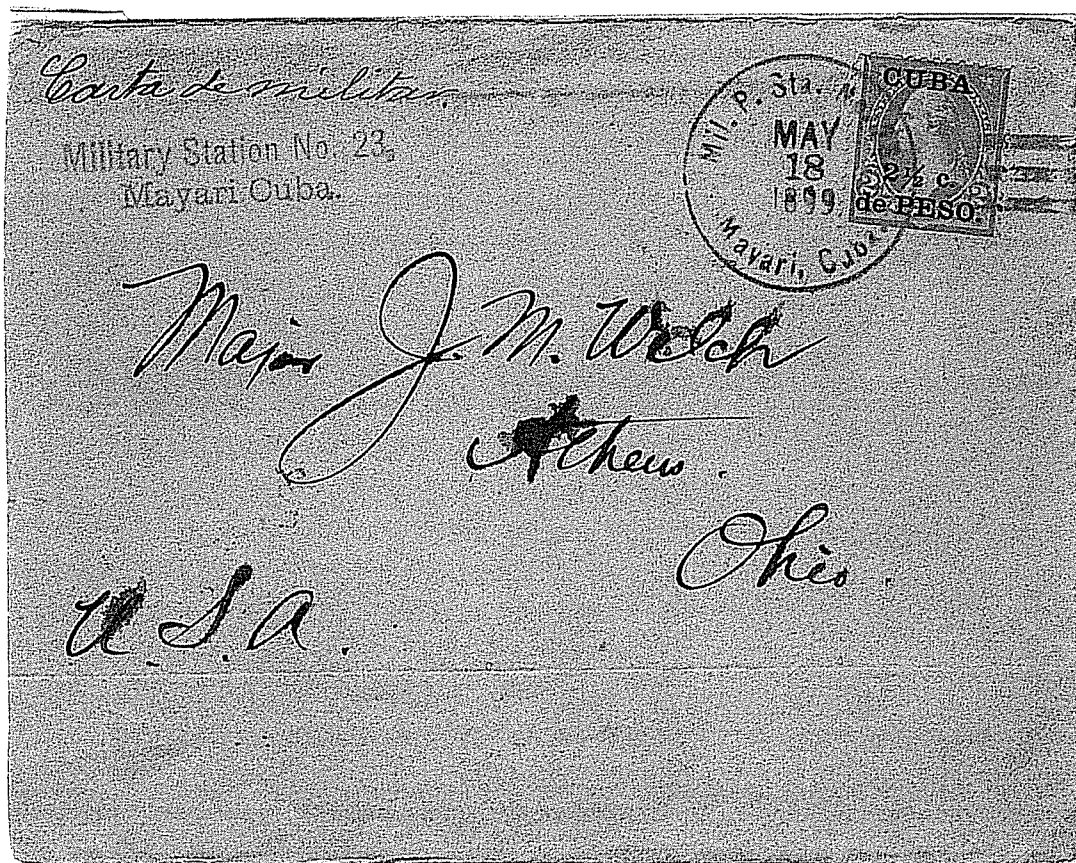 Carta de militar.
Military Station No. 23,
Mayari Cuba.
Mil. P. Sta.
MAY
18
1899
Mayari, Cuba.
CUBA
2½ c.
de PESO.
2 2
Major J. M. Welch
Athens.
Ohio.
U. S. A.